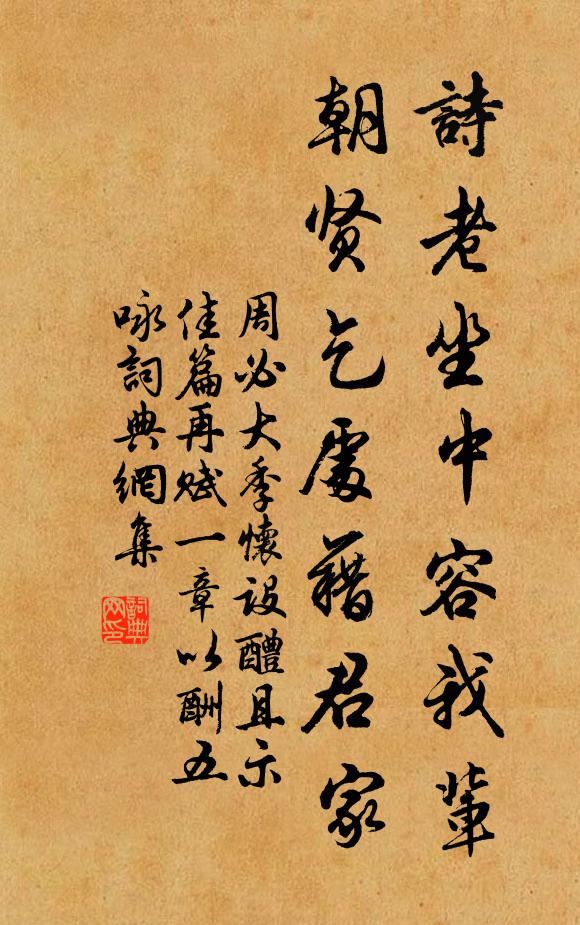 詩老坐中容我輩
朝贤乞處藉君家
周必大季懷設醴且示
佳篇再赋一章以酬五
咏詞典網集
詞典网印